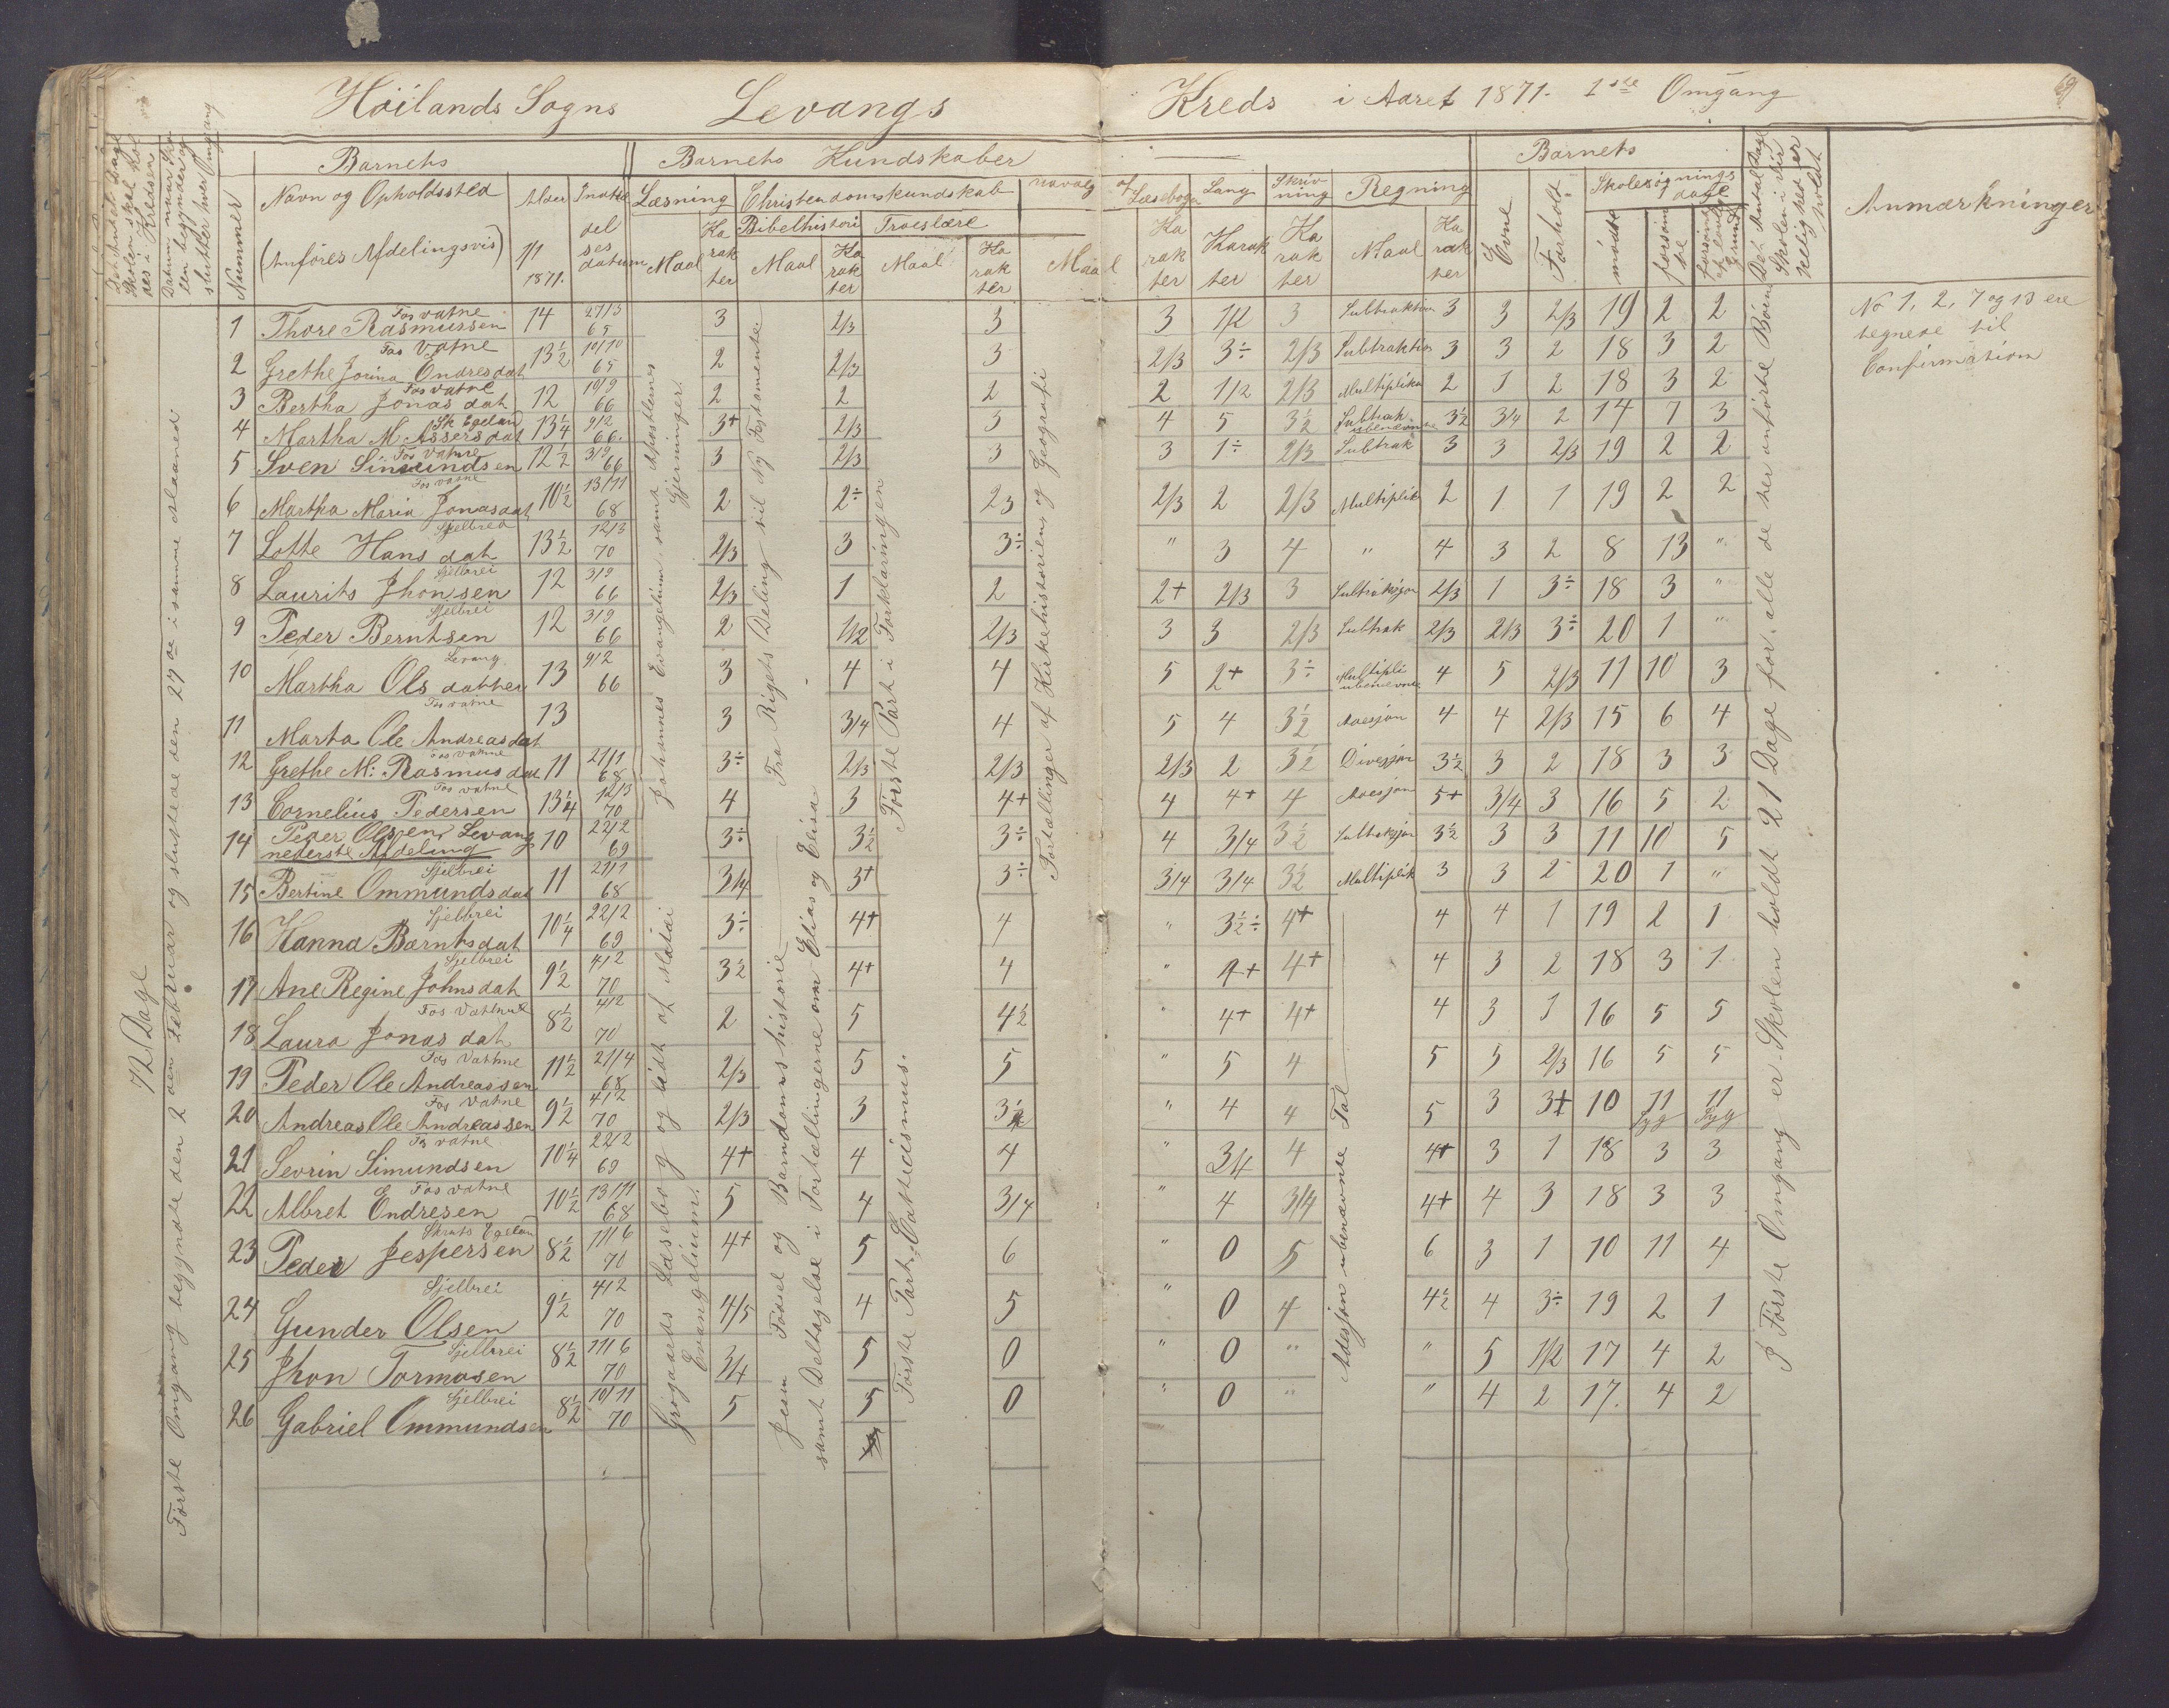 Höilands Sogns Levangs Kreds i Aaret 1871. 1ste Omgang
69
Barnets
Barnets Kundskaber
Barnets
Nummer
Navn og Opholdssted
(Anføres Afdelingsvis)
Alder 1/1 1871.
Indtrædelses datum
Læsning
Christendomskundskab
Udvalg af Læsebogen
Sang
Skrivning
Regning
Evne
Forhold
Skolesøgningsdage
Bibelhistori
Troeslære
Maal
Karakter
Maal
Karakter
Maal
Karakter
Maal
Karakter
Karakter
Karakter
Maal
Karakter
mødte
forsømte
Det Antal Dage Skolen i Virkelighed er holdt
Anmærkninger
72 Dage
Første Omgang begyndte den 2den Februar og sluttede den 27de i samme Maaned
1 Thore Rasmussen Fosvatne 14 27/3 65 3 2/3 3 3 1/2 3 Subtraktion 3 3 2/3 19 2 2
2 Grethe Jorina Ondresdat Fos Vatne 13½ 10/10 65 2 2/3 3 2/3 3÷ 2/3 Subtraktion 3 3 2 18 3 2
3 Bertha Jonas dat Fosvatne 12 10/9 66 2 2 2 2 1/2 2/3 Multiplika 2 1 2 18 3 2
4 Martha M. Assersdat Sk Egelan 13¼ 9/2 66. 3+ 2/3 3 4 5 3½ Subtrak ubenævnte 3½ 3/4 2 14 7 3
5 Sven Simundsen Fos Vatne 12½ 3/9 66 3 2/3 3 3 1÷ 2/3 Subtrak 3 3 2/3 19 2 2
6 Martha Maria Jonasdat Fosvatne 10½ 13/11 68 2 2÷ 2/3 2/3 2 2/3 Multiplik 2 1 1 19 2 2
7 Lotte Hans dat Sjelbrei 13½ 12/3 70 2/3 3 3÷ " 3 4 " 4 3 2 8 13 "
8 Laurits Jhonsen Sjelbrei 12 3/9 66 2/3 1 2 2+ 2/3 3 Subtraksjon 2/3 1 3÷ 18 3 "
9 Peder Berntsen Sjelbrei 12 3/9 66 2 1/2 2/3 3 3 2/3 Subtrak 2/3 2/3 3÷ 20 1 "
10 Martha Ols datter Levang. 13 9/2 66 3 4 4 5 2+ 3÷ Multipli ubenævne 4 5 2/3 11 10 3
11 Marta Ole Andreasdat Fosvatne 13 3 3/4 4 5 4 3½ Adesjon 4 4 2/3 15 6 4
12 Grethe M: Rasmus dat Fosvatne 11 21/1 68 3÷ 2/3 2/3 2/3 2 3½ Divesjon 3½ 3 2 18 3 3
13 Cornelius Pedersen Fos vatne 13¼ 12/3 70 4 3 4+ 4 4+ 4 Adesjon 5+ 3/4 3 16 5 2
14 Peder Olsen Levang 10 22/2 69 3÷ 3½ 3÷ 4 3/4 3½ Subtraksjon 3½ 3 3 11 10 5
nederste Afdeling
15 Bertine Ommundsdat Sjelbrei 11 21/1 68 3/4 3+ 3÷ 3/4 3/4 3½ Multiplik 3 3 2 20 1 "
16 Hanna Barntsdat Sjelbrei 10¼ 22/2 69 3÷ 4+ 4 " 3½÷ 4+ 4 4 1 19 2 1
17 Ane Regine Johnsdat Sjelbrei 9½ 4/2 70 3½ 4+ 4 " 4+ 4+ 4 3 2 18 3 1
18 Laura Jonas dat Fos Vatne 8½ 4/2 70 2 5 4½ " 4+ 4+ 4 3 1 16 5 5
19 Peder Ole Andreassen Fos Vatne 11½ 21/4 68 2/3 5 5 " 5 4 5 5 2/3 16 5 5
20 Andreas Ole Andreassen Fos Vatne 9½ 4/2 70 2/3 3 3½ " 4 4 5 3 3+ 10 11 Syg 11 Syg
21 Sevrin Simundsen Fos vatne 10¼ 22/2 69 4+ 4 4 " 3/4 4 4+ 3 1 18 3 3
22 Albret Endresen Fos vatne 10½ 13/11 68 5 4 3/4 " 4 3/4 4+ 4 3 18 3 3
23 Peder Jespersen Skrats Egelan 8½ 11/6 70 4+ 5 6 " 0 5 6 3 1 10 11 4
24 Gunder Olsen Sjelbrei 9½ 4/2 70 4/5 4 5 " 0 4 4½ 4 3÷ 19 2 1
25 Jhon Tormosen Sjelbrei 8½ 11/6 70 3/4 5 0 " 0 " " 5 1/2 17 4 2
26 Gabriel Ommundsen Sjelbrei 8½ 10/11 70 5 5 0 " 0 " " 4 2 17. 4 2
Johannes Evangelium samt Apostlenes Gjerninger.
Grøgaards Læsebog og lidt af Matæi Evangelium.
Fra Rigets Deling til Ny Testamente
Jesu Fødsel og Barndoms historie samt Deltagelse i Fortællingerne om Elias og Elisa
Første Part i Forklaringen
Første Part. Cattekismus.
Fortællinger af Kirkehistorien og Geografi
Adesjon ubenævnte Tal
I Første Omgang er Skolen holdt 21 Dage for alle de her anførte Børn
No 1, 2, 7 og 13 ere tegnede til Confirmation